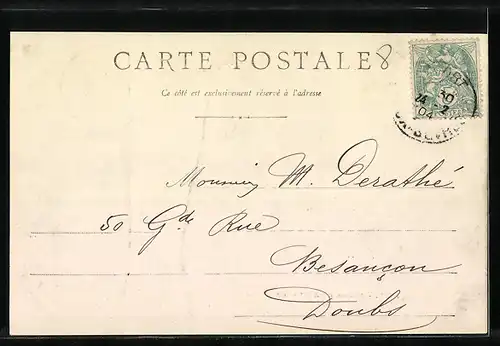 CARTE POSTALE 8
Ce côté est exclusivement réservé à l'adresse
Monsieur M. Derathé
50 Gde Rue
Besançon
Doubs